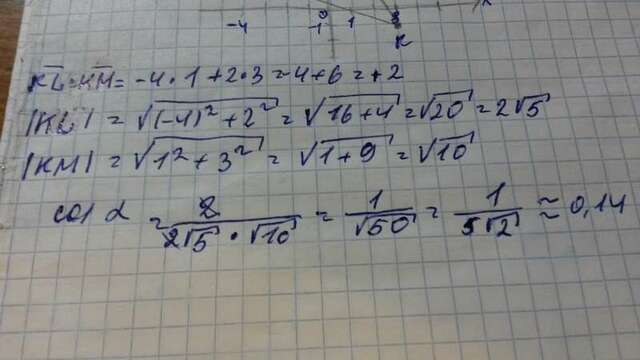 -4 -1 1
K
KL·KM = -4·1+2·3=-4+6=+2
|KL| = √(-4)²+2² = √16+4 = √20 = 2√5
|KM| = √1²+3² = √1+9 = √10
cos α = 2/2√5·√10 = 1/√50 = 1/5√2 ≈ 0,14